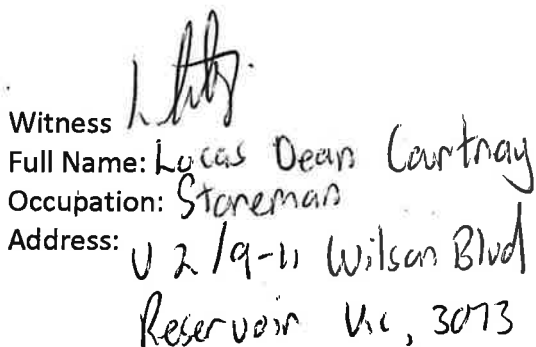 Witness
Full Name: Lucas Dean Courtnay
Occupation: Storeman
Address: U 2/9-11 Wilson Blvd
Reservoir Vic, 3073